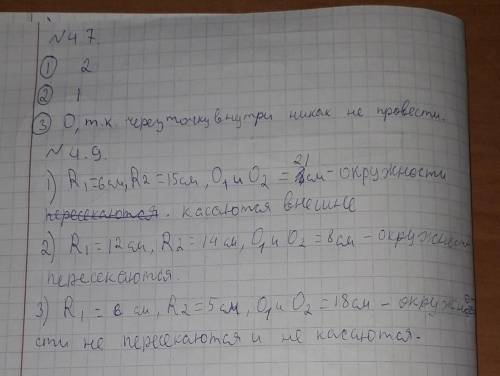 №47.
① 2
② 1
③ 0, т.к. через точку внутри никак не провести.
№4.9.
1) R₁=6см, R2=15см, O₁ и O₂=21см - окружности
пересекаются. касаются внешне
2) R₁=12см, R₂=14см, O₁ и O₂=8см - окружности
пересекаются.
3) R₁=6см, R2=5см, O₁ и O₂=18см - окружно
сти не пересекаются и не касаются.